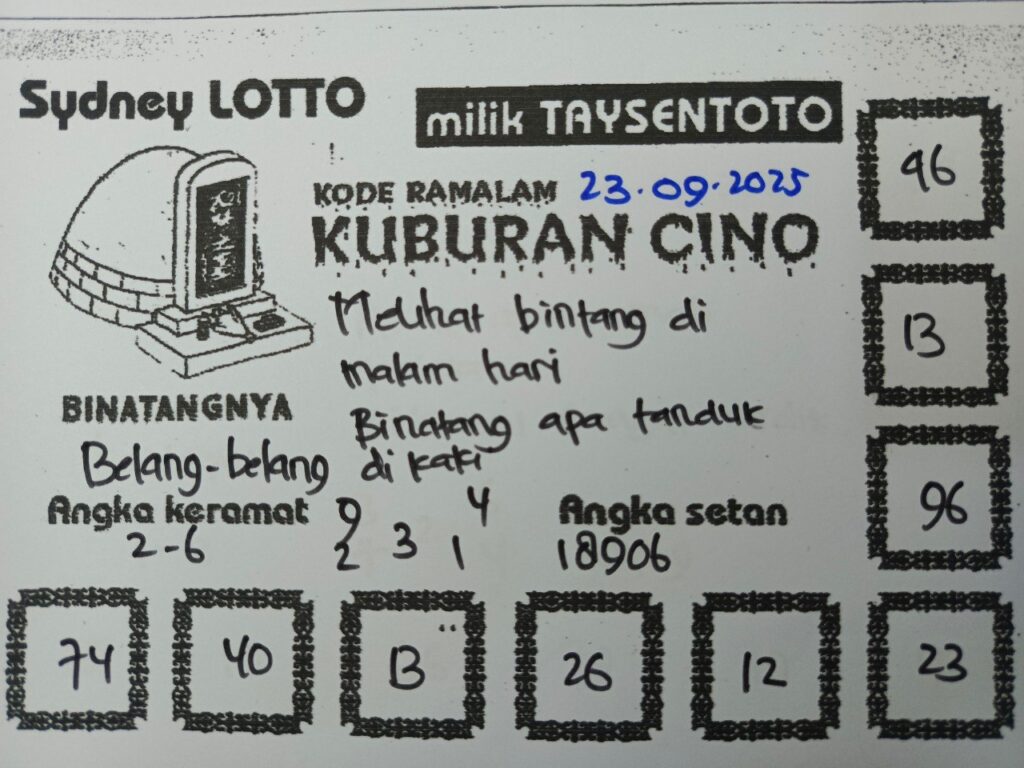 Sydney LOTTO
milik TAYSENTOTO
KODE RAMALAM 23.09.2025
KUBURAN CINO
Melihat bintang di
malam hari
Binatang apa tanduk
di kaki
BINATANGNYA
Belang-belang
Angka keramat
2-6
9 4
2 3 1
Angka setan
18906
46
13
96
74 40 13 26 12 23